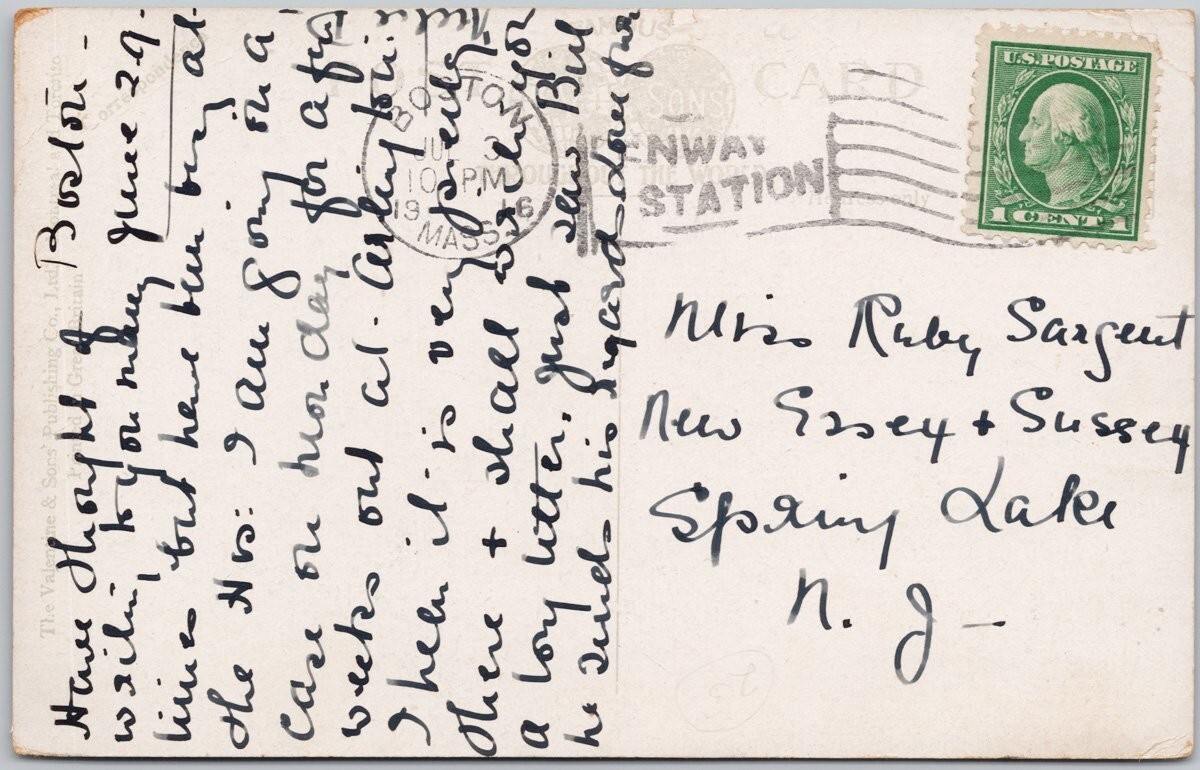 Boston - June 29 -
Have thought of
writing to you many
times but have been busy at
the Hos: I am going on a
case on monday for a few
weeks out at
I hear it is very pretty
there + shall write you
a long letter. Just saw Bill
he sends his regards
BOSTON
JUL
10 PM
1916
MASS.
FENWAY
STATION
CARD
& SONS
U.S. POSTAGE
1 CENT 1
Miss Ruby Sargent
New Essex + Sussex
Spring Lake
N. J -
The Valentine & Sons' Publishing Co., Ltd.
Printed in Great Britain